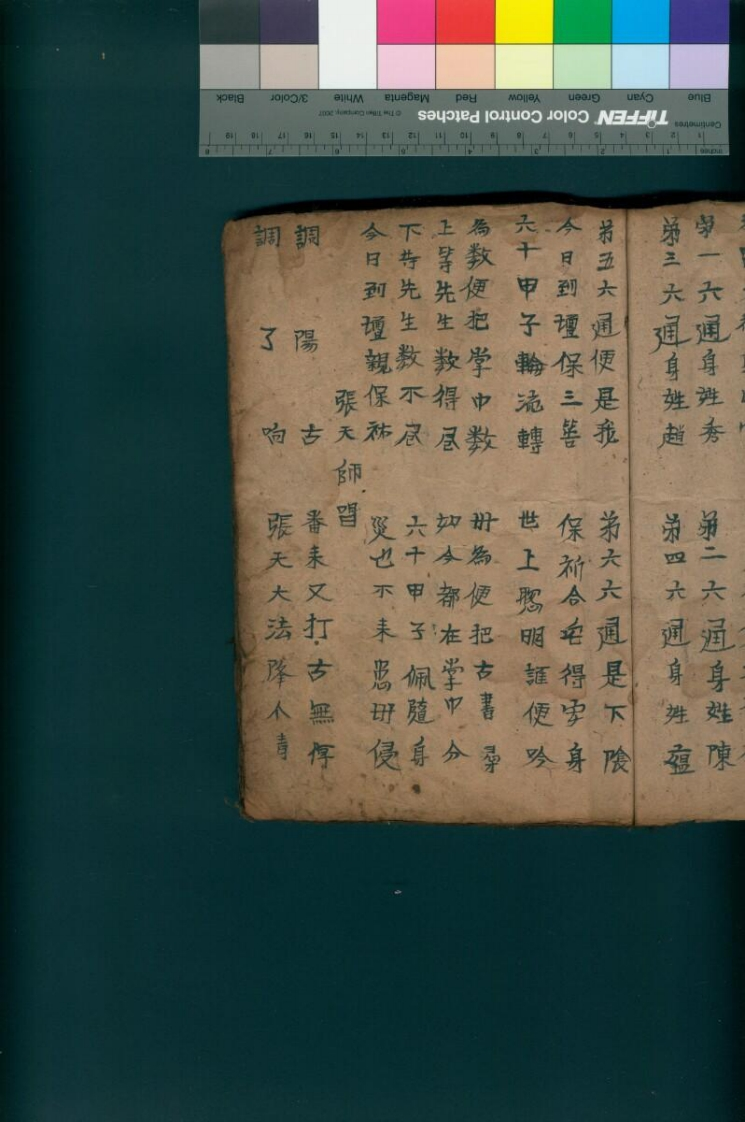 第一六通身姓秀 第二六通身姓陳
第三六通身姓趙 第四六通身姓蕴
第五六通便是我 第六六通是下陰
今日到壇保三善 保祈合宅得安身
六十甲子輪流轉 世上聰明誰便吟
為數便把掌巾數 毋為便把古書尋
上等先生數得尽 如今都在掌巾分
下等先生數不尽 六十甲子佩隨身
今日到壇親保祐 災也不来思毋侵
張天師唱
調陽古 番来又打古無停
調了响 張天大法降
Blue Cyan Green Yellow Red Magenta White 3/Color Black
TIFFEN Color Control Patches © The Tiffen Company, 2007
Centimetres
1 2 3 4 5 6 7 8 9 10 11 12 13 14 15 16 17 18 19
Inches